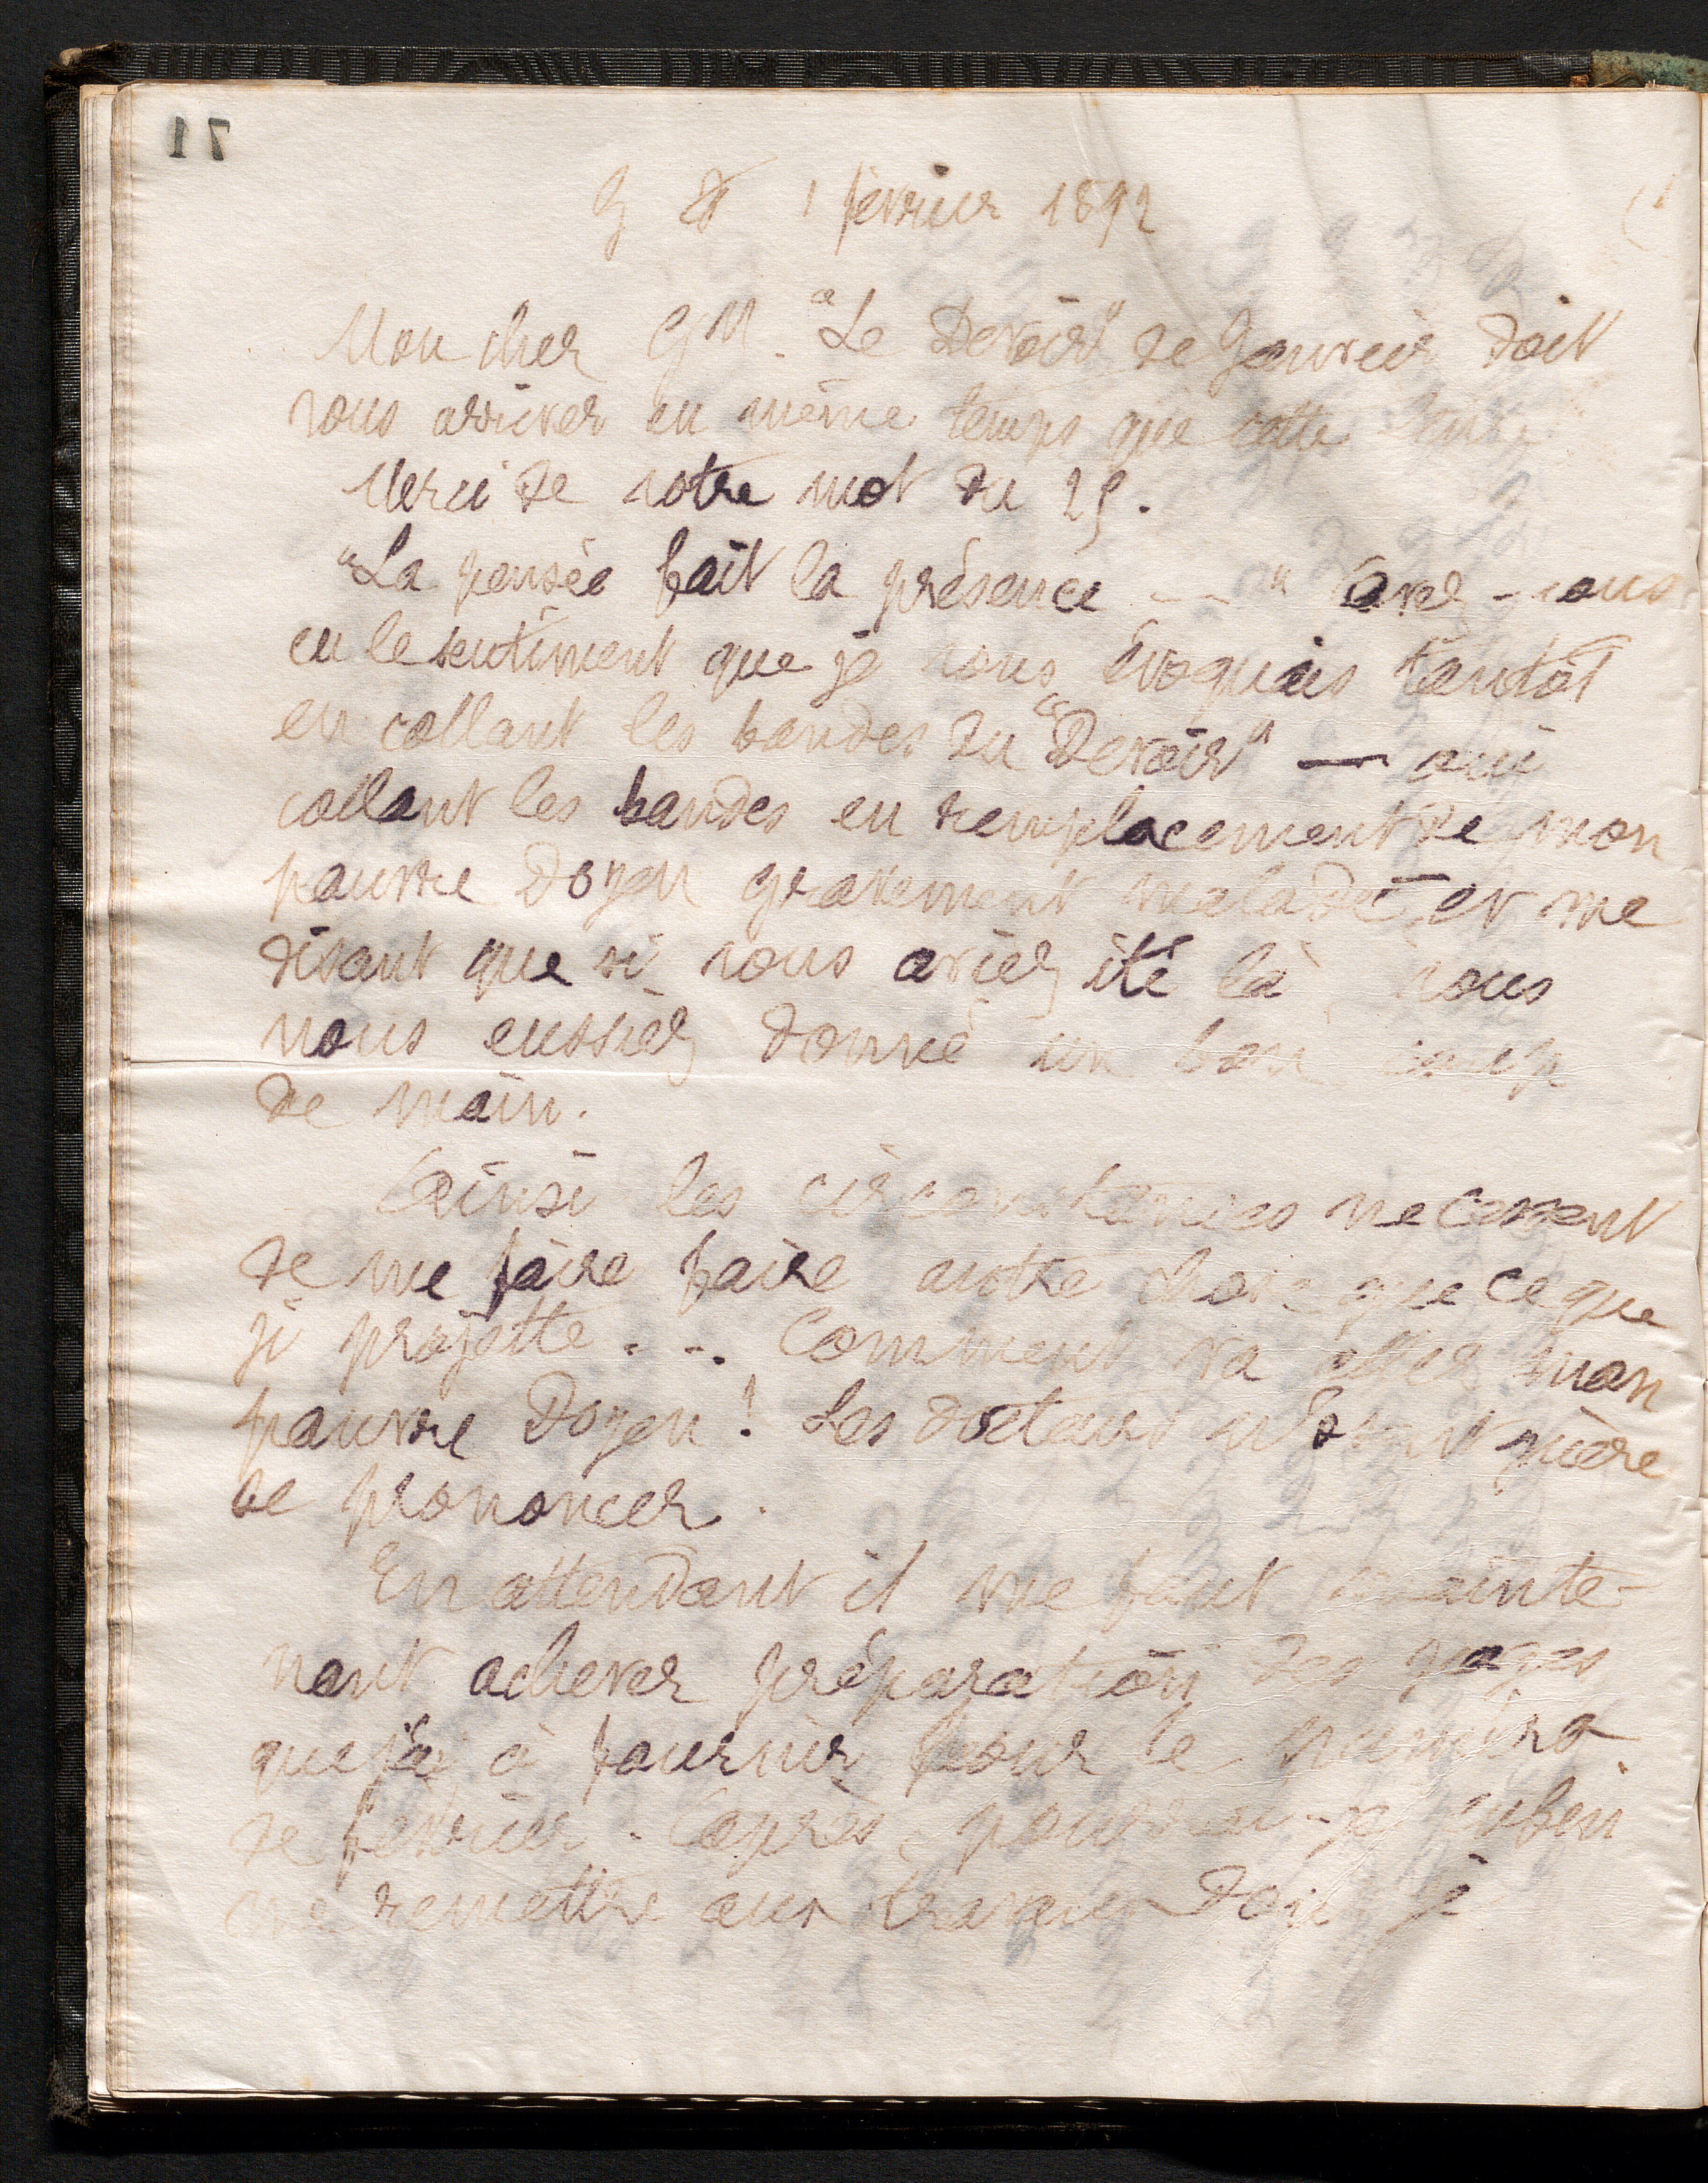 17
G St 1 février 1892
Mon cher GM. "Le Devoir" de Janvier doit
vous arriver en même temps que cette lettre
Merci de votre mot du 29.
"La pensée fait la présence --" Avez-vous
eu le sentiment que je vous évoquais tantôt
en collant les bandes du "Devoir" — oui
collant les bandes en remplacement de mon
pauvre Doyen gravement malade, et me
disant que si vous aviez été là, vous
nous eussiez donné un bon coup
de main.
Ainsi les circonstances ne cessent
de me faire faire autre chose que ce que
je projette... Comment va aller mon
pauvre Doyen! Les docteurs n'osent guère
se prononcer.
En attendant il me faut mainte-
nant achever préparation des pages
que j'ai à fournir pour le numéro
de février. Après, pourrai-je enfin
me remettre aux travaux dont je